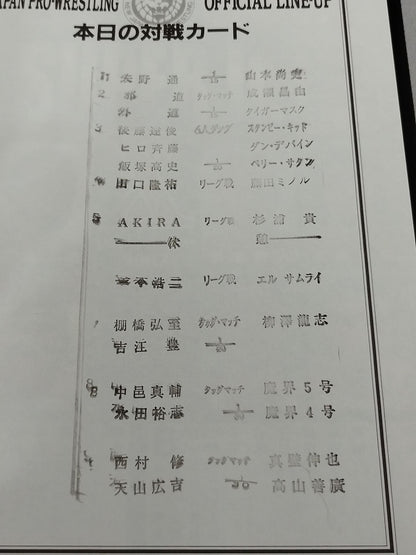 APAN PRO-WRESTLING OFFICIAL LINE-UP
本日の対戦カード
1 矢野通 1/15 山本尚史
2 邪道 タッグ・マッチ 成瀬昌由
外道 1/20 タイガーマスク
3 後藤達俊 6人タッグ スタンピー・キッド
ヒロ斉藤 ダン・デバイン
飯塚高史 1/20 ペリー・サタン
4 田口隆祐 リーグ戦 藤田ミノル
5 AKIRA リーグ戦 杉浦貴
休憩
浩二 リーグ戦 エル サムライ
7 棚橋弘至 タッグ・マッチ 柳澤龍志
吉江豊
8 中邑真輔 タッグマッチ 魔界5号
永田裕志 魔界4号
西村修 タッグマッチ 真壁伸也
天山広吉 高山善廣